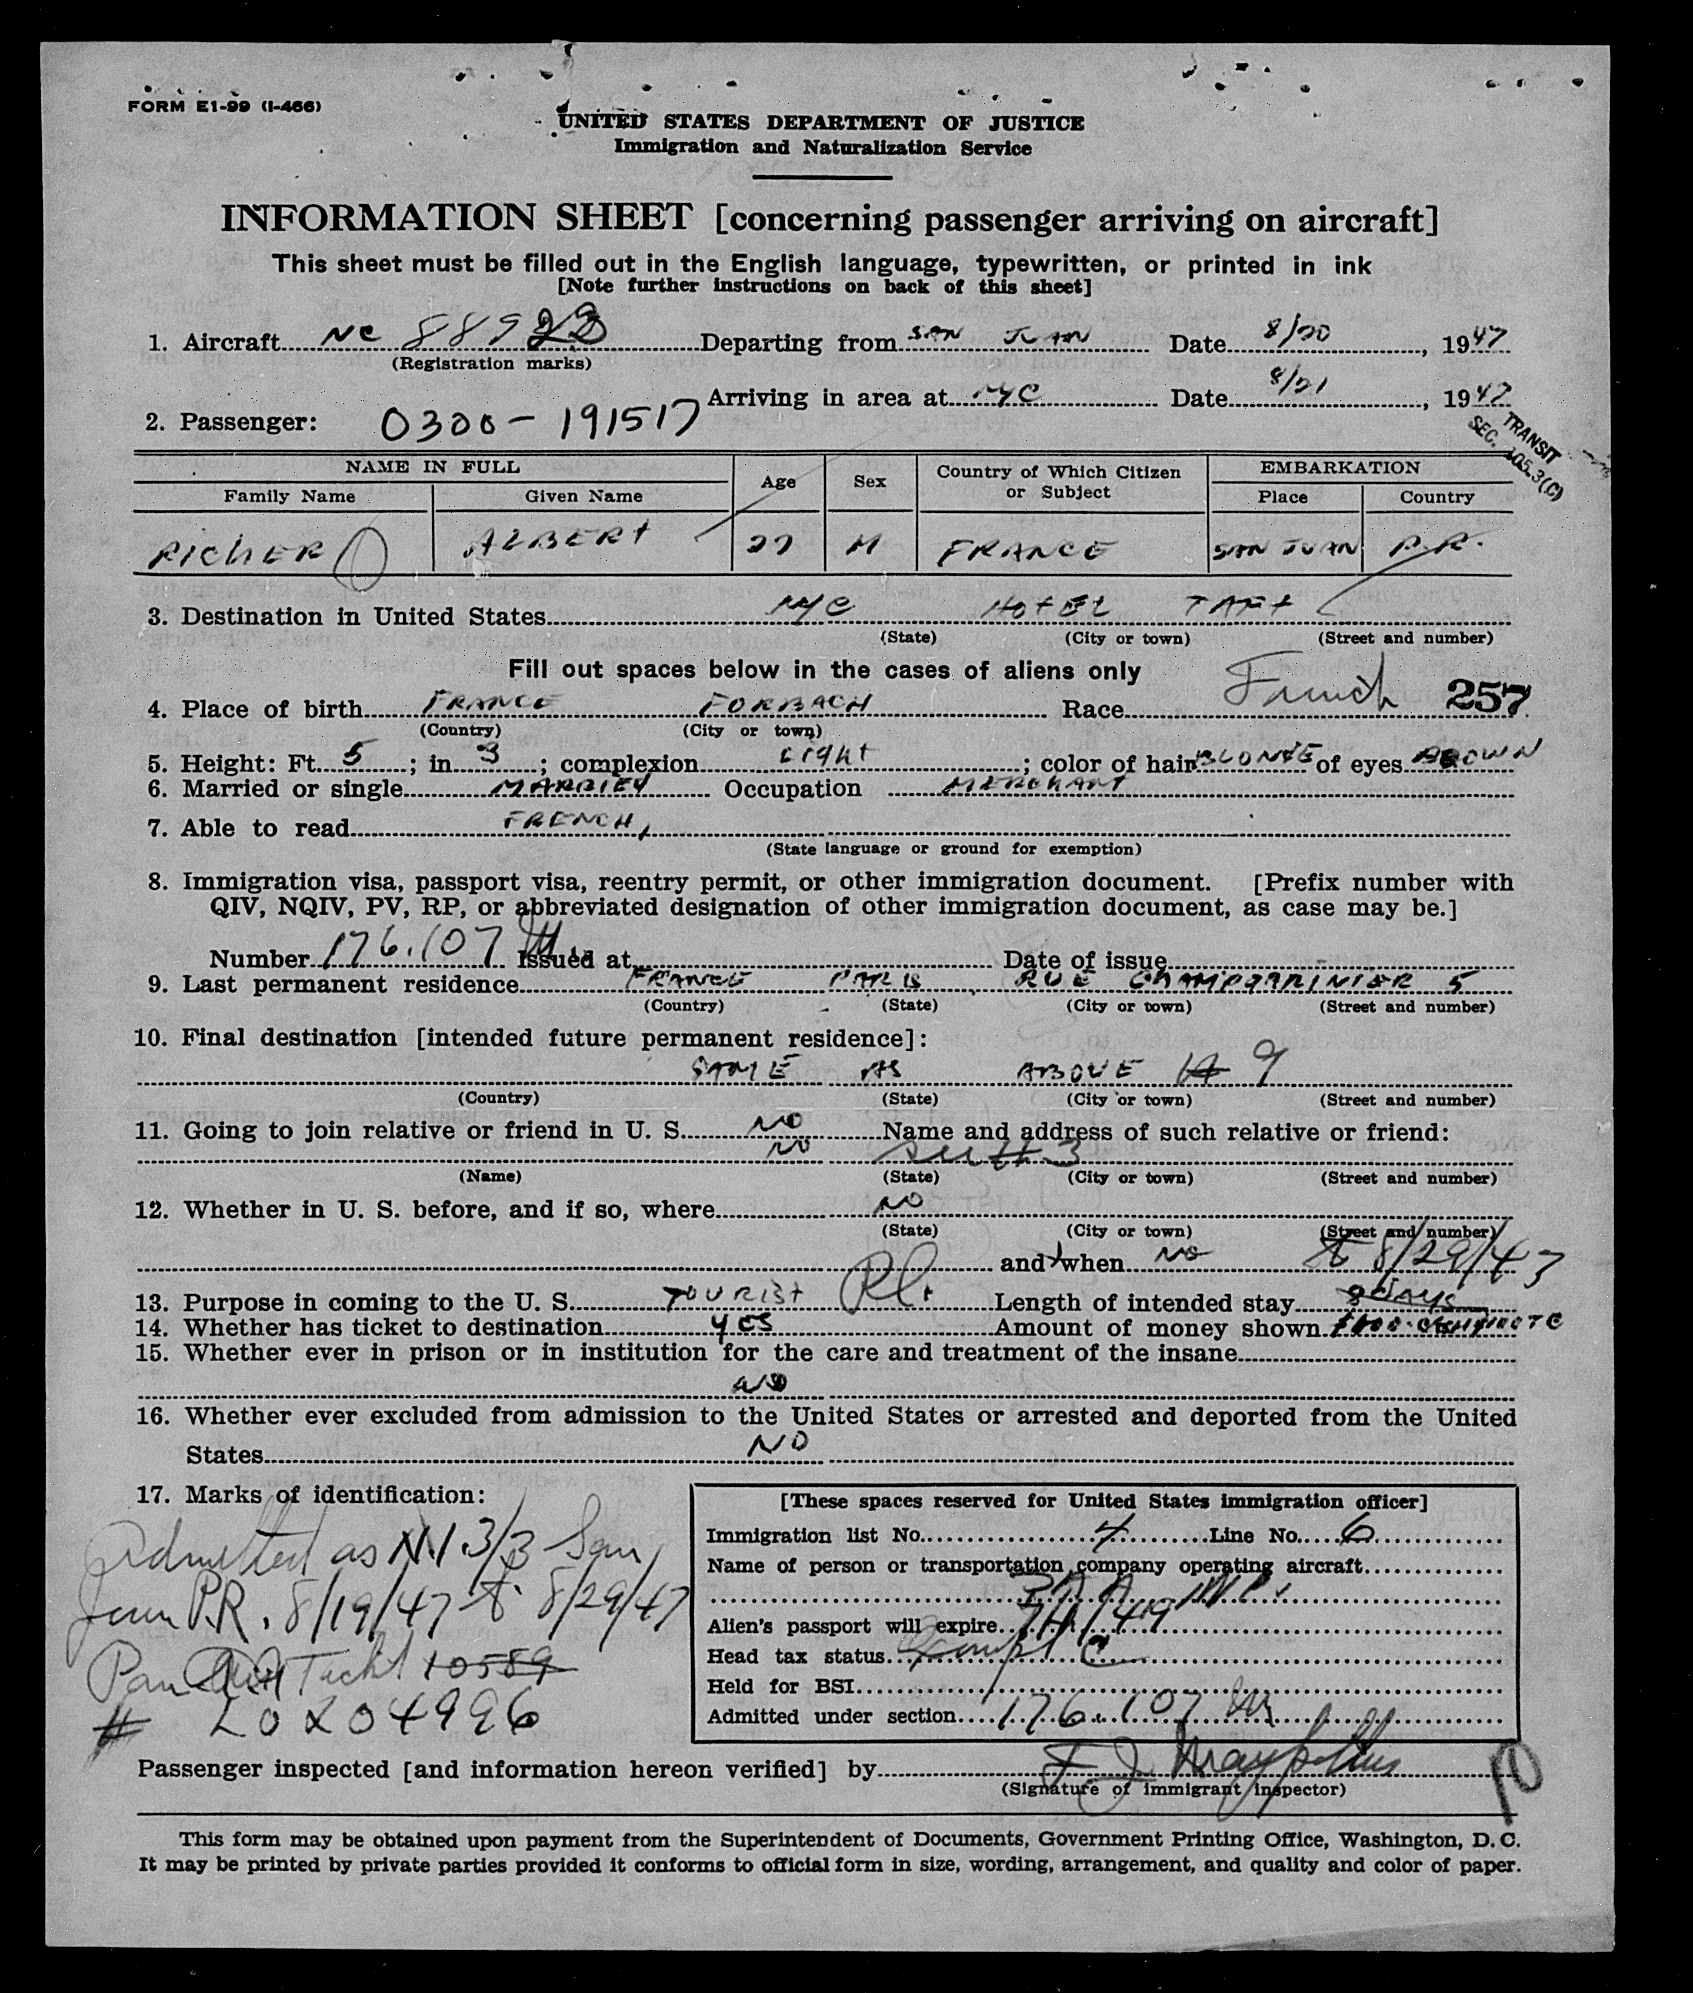 FORM E1-99 (I-466)
UNITED STATES DEPARTMENT OF JUSTICE
Immigration and Naturalization Service
INFORMATION SHEET [concerning passenger arriving on aircraft]
This sheet must be filled out in the English language, typewritten, or printed in ink
[Note further instructions on back of this sheet]
1. Aircraft NC 889 Departing from SAN JUAN Date 8/20, 1947
(Registration marks)
Arriving in area at NYC Date 8/21, 1947
2. Passenger: 0300-191517
TRANSIT
SEC. 105.3(C)
NAME IN FULL Age Sex Country of Which Citizen or Subject EMBARKATION
Family Name Given Name Place Country
RICHER ALBERT 27 M FRANCE SAN JUAN P.R.
3. Destination in United States NYC HOTEL TAFT
(State) (City or town) (Street and number)
Fill out spaces below in the cases of aliens only
4. Place of birth FRANCE FORBACH Race French 257
(Country) (City or town)
5. Height: Ft. 5; in 3; complexion LIGHT; color of hair BLONDE of eyes BROWN
6. Married or single MARRIED Occupation MERCHANT
7. Able to read FRENCH,
(State language or ground for exemption)
8. Immigration visa, passport visa, reentry permit, or other immigration document. [Prefix number with
QIV, NQIV, PV, RP, or abbreviated designation of other immigration document, as case may be.]
Number 176.107 Issued at Date of issue
9. Last permanent residence FRANCE PARIS RUE 5
(Country) (State) (City or town) (Street and number)
10. Final destination [intended future permanent residence]:
SAME AS ABOVE 9
(Country) (State) (City or town) (Street and number)
11. Going to join relative or friend in U. S. NO Name and address of such relative or friend:
NO see # 3
(Name) (State) (City or town) (Street and number)
12. Whether in U. S. before, and if so, where NO
(State) (City or town) (Street and number)
and when NO to 8/29/47
13. Purpose in coming to the U. S. TOURIST Length of intended stay 8 DAYS
14. Whether has ticket to destination YES Amount of money shown
15. Whether ever in prison or in institution for the care and treatment of the insane
NO
16. Whether ever excluded from admission to the United States or arrested and deported from the United
States NO
17. Marks of identification:
Admitted as N.I. 3/3 San
Juan P.R. 8/19/47 to 8/29/47
Pan Am Ticket 10589
# L0204996
[These spaces reserved for United States immigration officer]
Immigration list No. 4 Line No. 6
Name of person or transportation company operating aircraft
PAA
Alien's passport will expire
Head tax status Exempt
Held for BSI
Admitted under section 176.107
Passenger inspected [and information hereon verified] by
(Signature of immigrant inspector)
This form may be obtained upon payment from the Superintendent of Documents, Government Printing Office, Washington, D. C.
It may be printed by private parties provided it conforms to official form in size, wording, arrangement, and quality and color of paper.